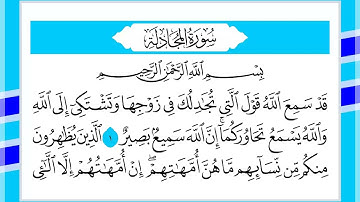 سُورَةُ المُجَادلَةِ
بِسْمِ اللَّهِ الرَّحْمَٰنِ الرَّحِيمِ
قَدْ سَمِعَ اللَّهُ قَوْلَ الَّتِي تُجَٰدِلُكَ فِي زَوْجِهَا وَتَشْتَكِي إِلَى اللَّهِ
وَاللَّهُ يَسْمَعُ تَحَاوُرَكُمَا إِنَّ اللَّهَ سَمِيعٌ بَصِيرٌ ١ الَّذِينَ يُظَٰهِرُونَ
مِنكُم مِّن نِّسَآئِهِم مَّا هُنَّ أُمَّهَٰتِهِمْ ۖ إِنْ أُمَّهَٰتُهُمْ إِلَّا الَّٰٓـِٔي